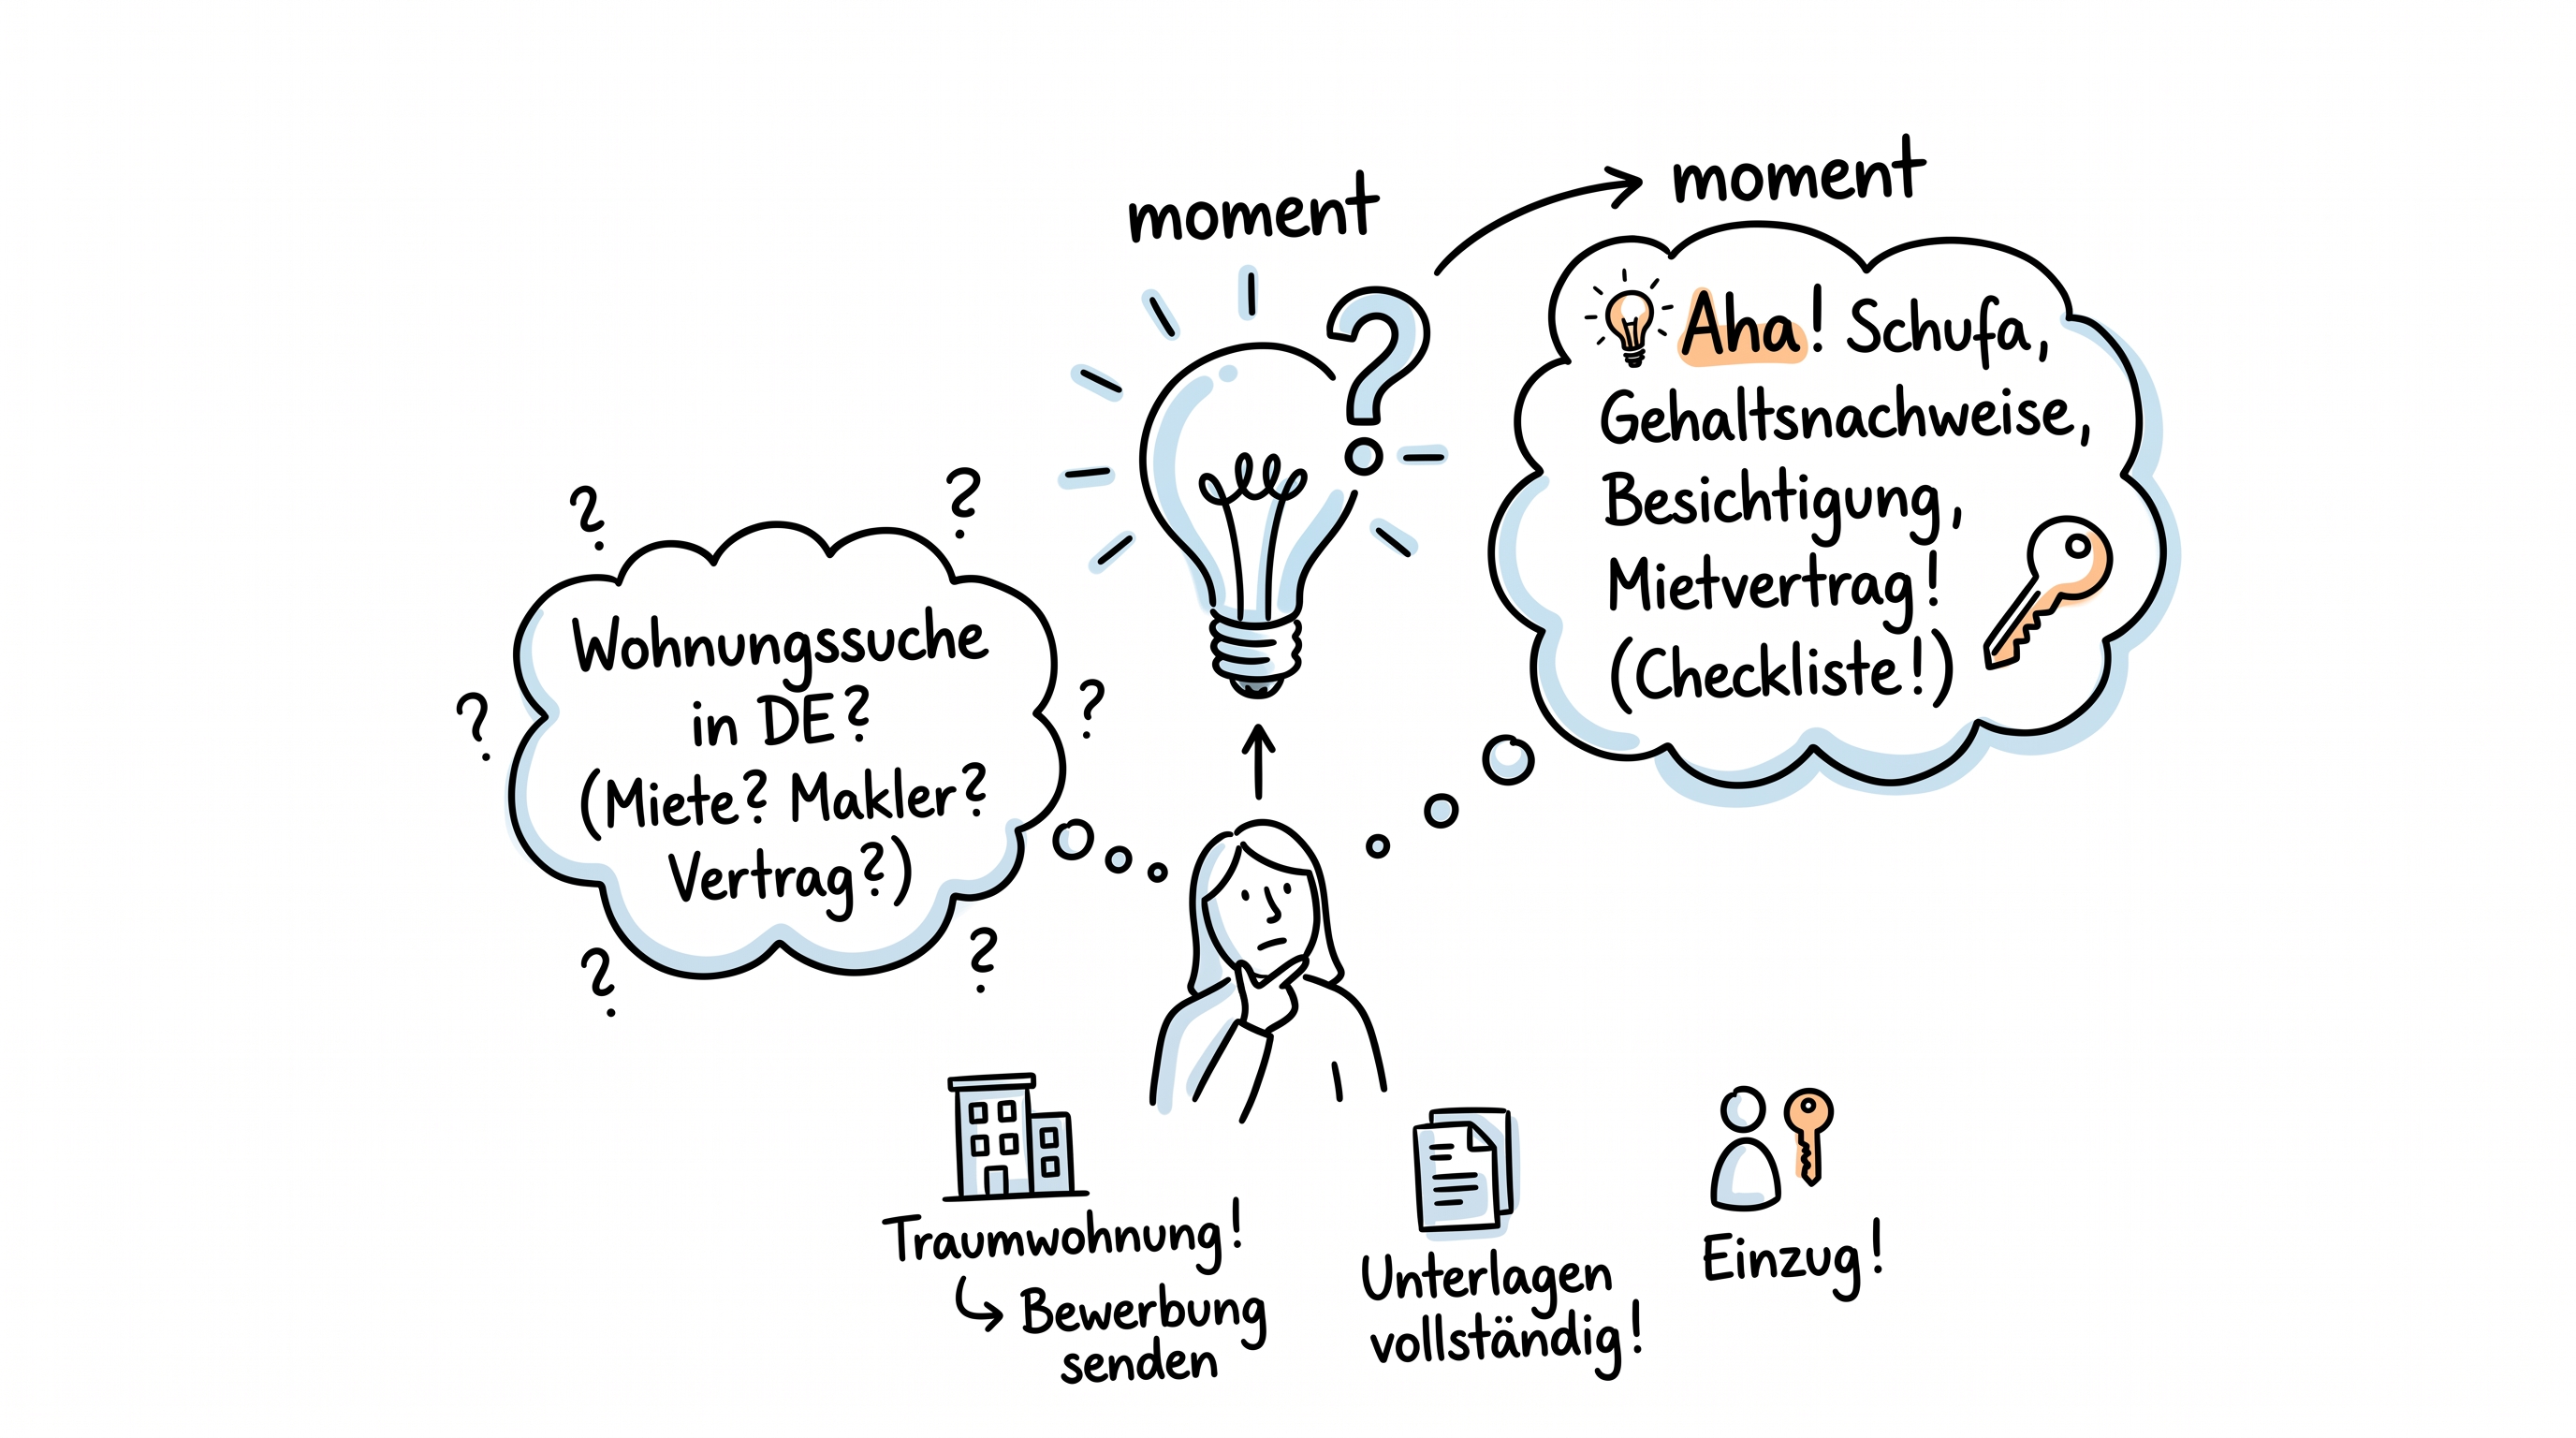 moment
moment
Wohnungssuche
in DE?
(Miete? Makler?
Vertrag?)
? ? ? ? ? ?
?
Aha! Schufa,
Gehaltsnachweise,
Besichtigung,
Mietvertrag!
(Checkliste!)
Traumwohnung!
Bewerbung
senden
Unterlagen
vollständig!
Einzug!